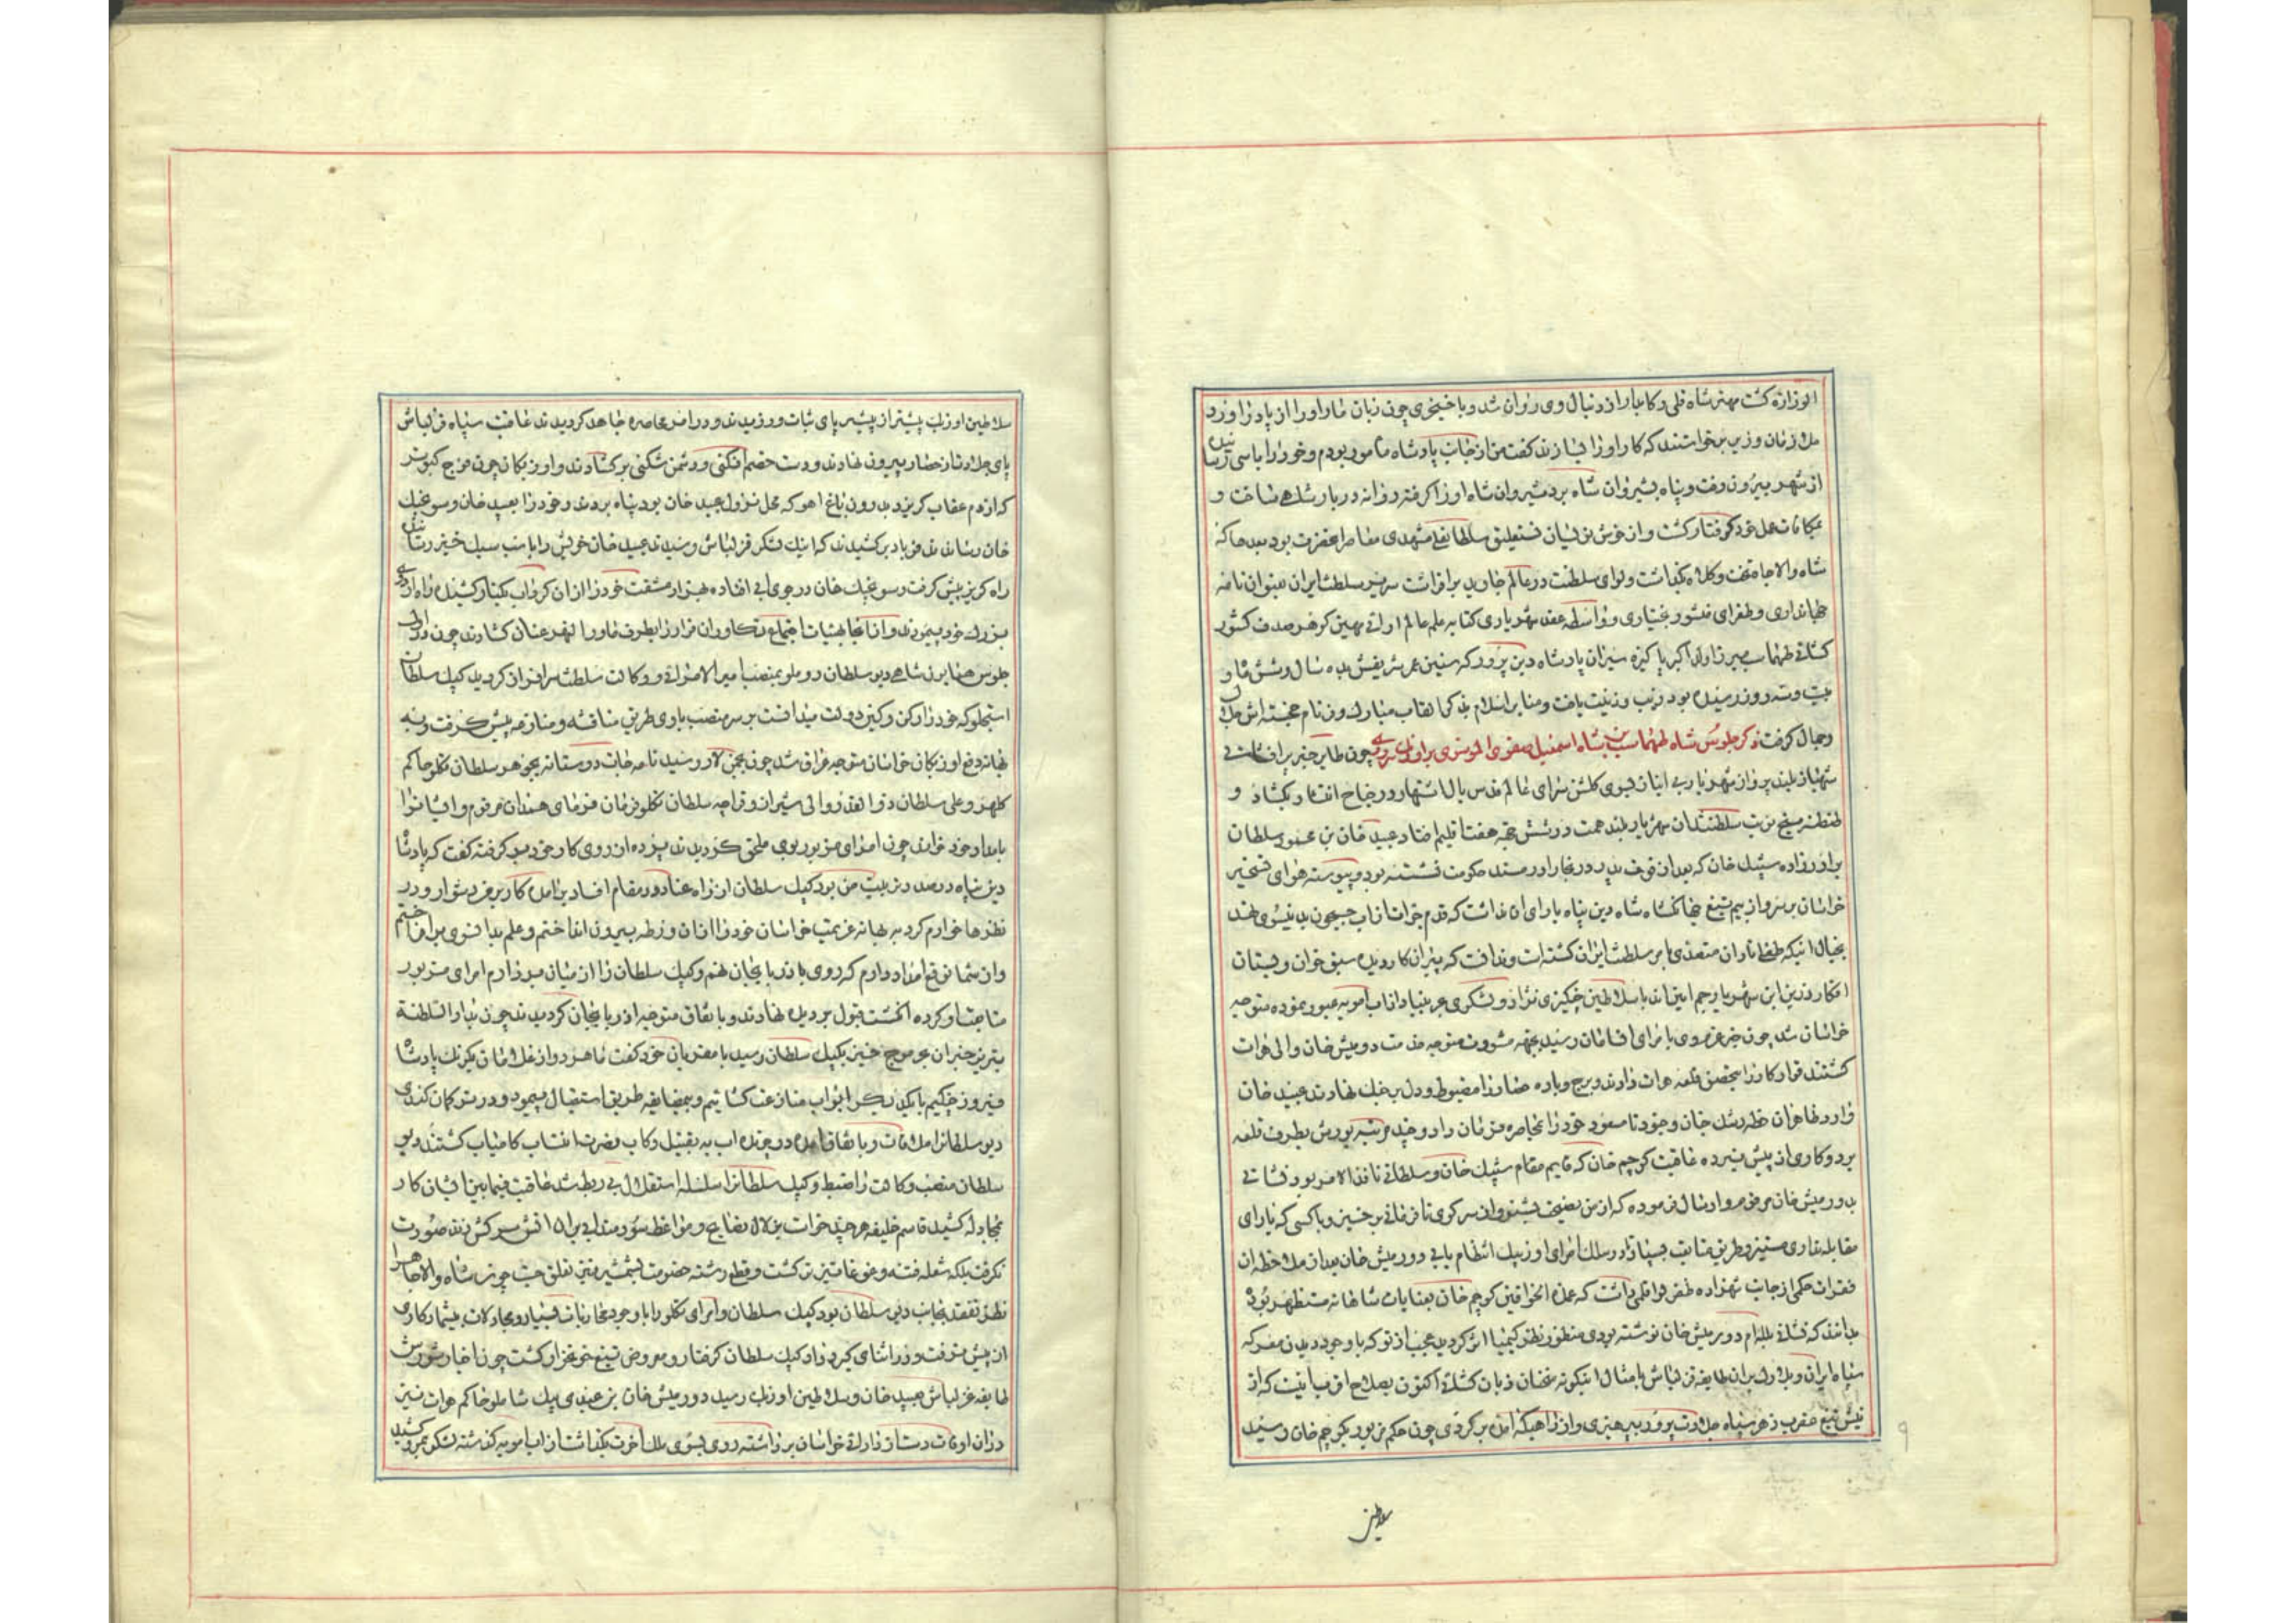 الوزاره گشت مهتر شاه قلی رکابدار از دنبال وی روان شد و با خنجری چون زبان مار او را از پا در آورد
ملازمان وزیر برخواستند که کار او را بسازند گفت من از جانب پادشاه مامور بودم و خود را
از شهر بیرون رفت و پناه بشیروان شاه برد شیروان شاه او را گرفته روانه دربار شاهی ساخت و
بمکافات عمل خود گرفتار گشت و از خوش نویسان نستعلیق سلطانعلی مشهدی معاصر انحضرت بود بعد حاکه
شاه والاجاه تخت و کلاه بگذاشت و لوای سلطنت در عالم جاوید برافراشت سریر سلطنت ایران عنوان نامه
جهانداری و طغرای منشور بختیاری و واسطه عقد شهریاری کتابه علم عالم مهین گرهر صدف کشور
طهماسب میرزا ولد اکبر پاکیزه سیر ان پادشاه دین پرور که سنین عمر شریفش بده سال و شش ماه و
بیست و سه روز رسیده بود زیب و زینت یافت و منابر اسلام بذکر القاب مبارک و نام خجسته اش
و جمال گرفت ذکر جلوس شاه طهماسب بن شاه اسمعیل صفوی الموسوی بر اورنک چون طایر خبر بر افشانی
شهباز بلند پرواز شهریار بسوی گلشن سرای عالم قدس بال اشتهار و جناح انتشار بگشاد و
طنطنه سلطنت ان شهریار بلند همت در شش جهة هفت اقلیم افتاد عبید خان بن محمود سلطان
برادرزاده شیبک خان که بعد از فوت پدر در بخارا در مسند حکومت نشسته بود و پیوسته هوای تسخیر
خراسان بر سر و از بیم تیغ جهانگشاه شاه دین پناه یارای ان نداشت که قدم جرات از اب جیحون بدینسوی نهد
بخیال اینکه طفلی نادان متصدی امر سلطنت ایران گشته است و ندانست که پیران کار دیده سبق خوان دبستان
افکار رزین این شهریار جم ایین اند با سلاطین چنگیزی نژاد و لشگری بی بنیاد از اب امویه عبور نموده متوجه
خراسان شد چون خبر عزم وی بامرای رسید بجهه مشورت متوجه خدمت دورمیش خان والی هرات
گشتند قرار کار را بتحصن قلعه هرات دادند و برج و باره حصار را مضبوط و دل بر جنک نهادند عبید خان
وارد ظاهر ان خطه رشک جنان و جنود نامسعود خود را بمحاصره فرمان داد و چند مرتبه یورش بطرف قلعه
برد و کاری از پیش نبرده عاقبت کوچم خان که قایم مقام شیبک خان و سلطانی نافذ الامر بود
بدورمیش خان مرقوم و ارسال فرموده که از من نصیحت بشنو و از سر کوی نافرمانی برخیز و با کسی که یارای
مقابله نداری مستیز و طریق متابعت بسپار تا در سلک امرای اوزبک انتظام یابی دورمیش خان بعد از ملاحظه ان
فقرات حکمی از جانب شهزاده ظفر لوا قلمی داشت که عمدة الخواقین کوچم خان بعنایات شاهانه مستظهر بوده
بدانند که بدورمیش خان نوشته بودی منظور نظر کیمیا اثر گردید عجب از تو که با وجود دیدن معرکه
سپاه ایران و دلاوران طایفه قزلباش بامثال اینگونه سخنان زبان اکنون صلاح ان میانیست که از
نیش تیغ عقرب زهر سپاه جلادت پرور بپرهیزی و از راهیکه امده برگردی چون حکم مزبور بکوچم خان رسید
سلاطین
سلاطین اوزبک بیشتر از پیشتر پای ثبات ورزیدند و در امر محاصره جاهد گردیدند عاقبت سپاه قزلباش
پای جلادت از حصار بیرون نهادند و دست خصم افکنی و دشمن شکنی برگشادند و اوزبکان چون فوج کبوتر
که از دم عقاب گریزد بدرون باغ اهو که محل نزول عبید خان بود پناه بردند و خود را بعبید خان و سونجک
خان رسانیدند فریاد برکشیدند که اینک لشگر قزلباش رسیدند عبید خان خویش را باسب سبک خیز
راه گریز پیش گرفت و سونجک خان در جوی ابی افتاده بهزار مشقت خود را از ان گرداب بکنار کشیده راه
بزرک خود پیمودند و از انجا بهیئات اجتماع تکاوران فرار را بطرف ماورا النهر عنان گشادند چون در
جلوس همایون شاهی دیو سلطان روملو بمنصب امیر الامرائی و وکالت سلطنت سرافراز گردید کپک سلطان
استجلو که خود را رکن رکین دولت میدانست بر سر منصب با وی طریق مناقشه و منازعه پیش گرفت و به
بهانه دفع اوزبکان خراسان متوجه عراق شد چون بچمن لار رسید نامه جات دوستانه بجوهه سلطان تکلو حاکم
کلهر و علی سلطان ذوالقدر والی شیراز و قراجه سلطان تکلو فرمان فرمای همدان مرقوم و ایشانرا
بامداد خود خواند چون امرای مزبور بوی ملحق گردیدند پرده از روی کار خود برگرفته گفت که پادشاه
دین پناه در صدد تربیت من بود کپک سلطان از راه عناد در مقام افساد برامده کار بر من دشوار و در
نظرها خوارم کرد بهانه عزیمت خراسان خود را از ان ورطه بیرون انداختم و علم بدانسوی برافراختم
و از شما توقع امداد دارم که روی باذربایجان نهم و کپک سلطان را از میان بردارم امرای مزبور
متابعت او کرده انگشت قبول بر دیده نهادند و باتفاق متوجه اذربایجان گردیدند چون بدار السلطنة
تبریز خبر ان بحر موج خیز بکپک سلطان رسید با مقربان خود گفت ما هر دو از غلامان یکرنک پادشاه
فیروز جنگیم با یکدیگر ابواب منازعت نگشائیم و بمضایقه طریق استقبال پیمود و در ترکمان کندی
دیو سلطانرا ملاقات و باتفاق امده در چرنداب به تقبیل رکاب نصرت انتساب کامیاب گشتند دیو
سلطان منصب وکالت را ضبط و کپک سلطانرا سلسله استقلال بی ربط شد عاقبت فیمابین ایشان کار
بمجادله کشید قاسم خلیفه هر چند خواست بزلال نصایح و مواعظ سودمند ابی بر ان اتش سرکش زند صورت
نگرفت بلکه شعله فتنه و غوغا تیزتر گشت و قطع رشته خصومت بشمشیر تعلق جست چون شاه والاجاه را
نظر تفقد بجانب دیو سلطان بود کپک سلطان و امرای تکلو را با وجود محاربات بسیار و مجادلات بیشمار کاری
از پیش نرفت و در اثنای گیر و دار کپک سلطان گرفتار و معروض تیغ خونخوار گشت چون اخبار شورش
طایفه قزلباش بعبید خان و سلاطین اوزبک رسید دورمیش خان بن عبدی بیک شاملو حاکم هرات نیز
در ان اوقات دست از دارائی خراسان برداشته روی بسوی ملک اخرت بگذاشت از اب امویه گذشته لشگر بمرو کشید